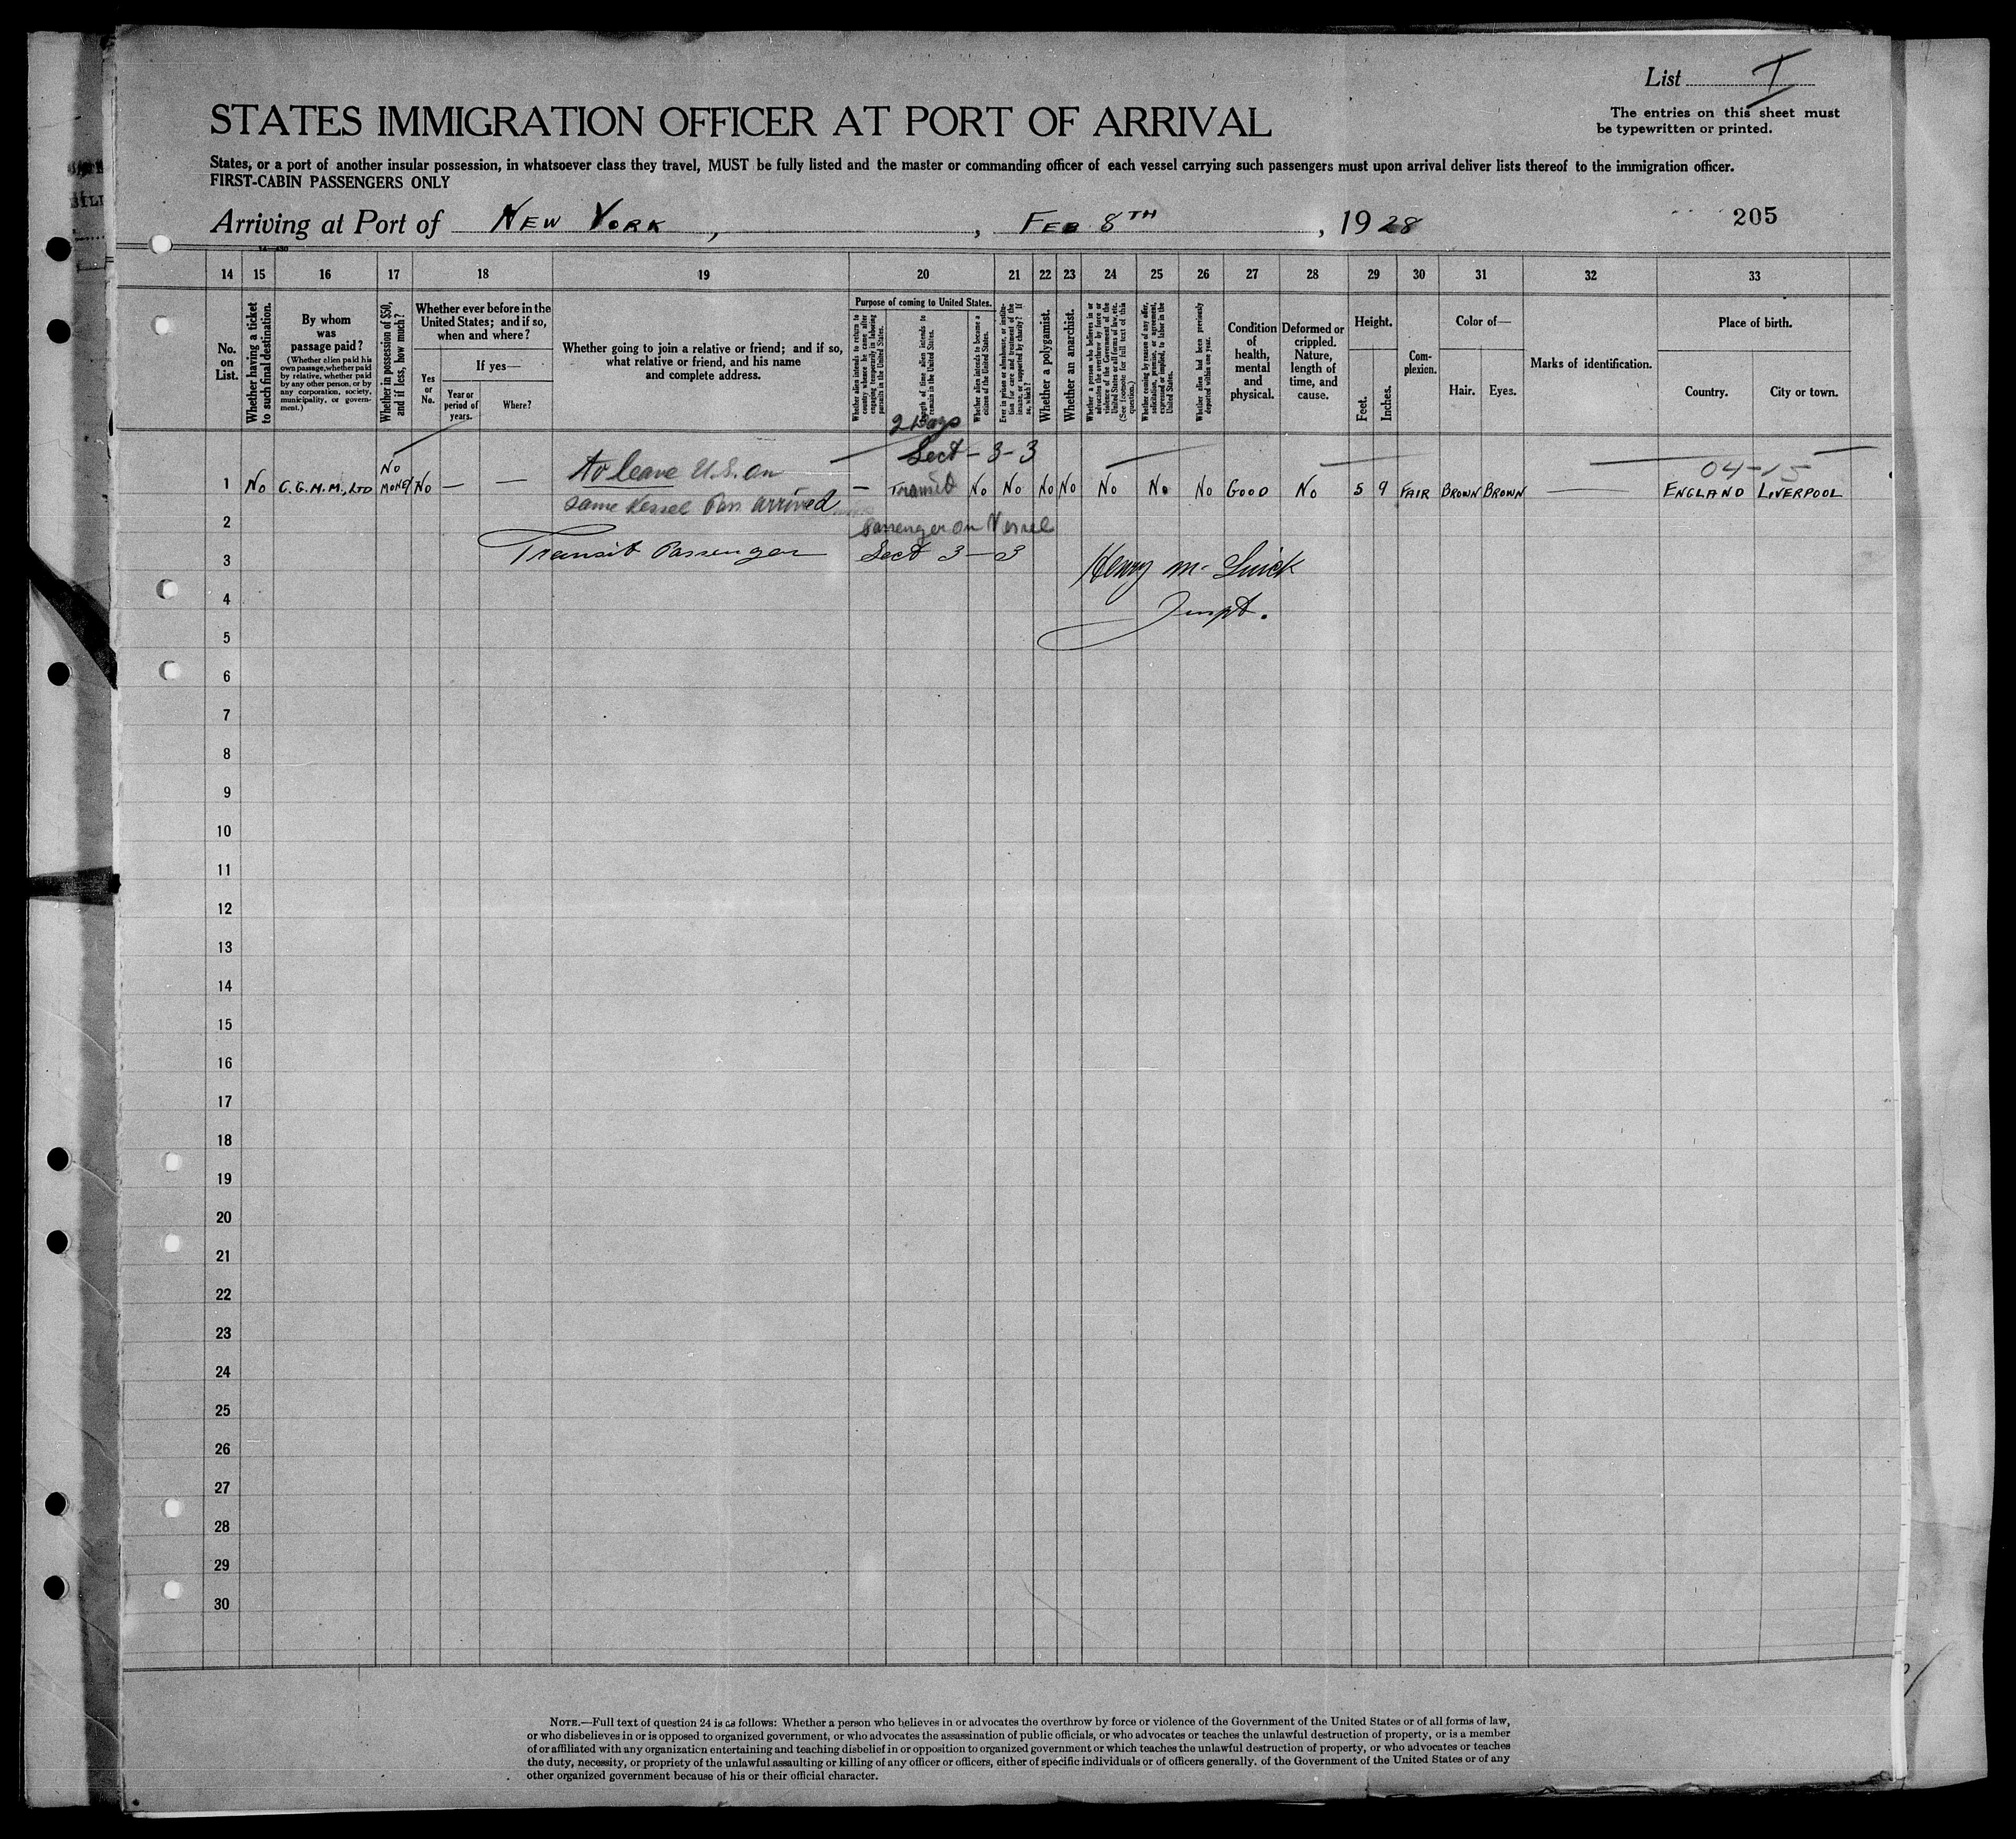 List I
The entries on this sheet must
be typewritten or printed.
STATES IMMIGRATION OFFICER AT PORT OF ARRIVAL
States, or a port of another insular possession, in whatsoever class they travel, MUST be fully listed and the master or commanding officer of each vessel carrying such passengers must upon arrival deliver lists thereof to the immigration officer.
FIRST-CABIN PASSENGERS ONLY
Arriving at Port of NEW YORK, , FEB 8TH, 1928
205
14 15 16 17 18 19 20 21 22 23 24 25 26 27 28 29 30 31 32 33
No. on List.
Whether having a ticket to such final destination.
By whom was passage paid?
(Whether alien paid his own passage, whether paid by relative, whether paid by any other person, or by any corporation, society, municipality, or government.)
Whether in possession of $50, and if less, how much?
Whether ever before in the United States; and if so, when and where?
Yes or No.
If yes—
Year or period of years.
Where?
Whether going to join a relative or friend; and if so, what relative or friend, and his name and complete address.
Purpose of coming to United States.
Whether alien intends to return to country whence he came after engaging temporarily in laboring pursuits in the United States.
Length of time alien intends to remain in the United States.
Whether alien intends to become a citizen of the United States.
Ever in prison or almshouse, or institution for care and treatment of the insane, or supported by charity? If so, which?
Whether a polygamist.
Whether an anarchist.
Whether a person who believes in or advocates the overthrow by force or violence of the Government of the United States or all forms of law, etc. (See footnote for full text of this question.)
Whether coming by reason of any offer, solicitation, promise, or agreement, expressed or implied, to labor in the United States.
Whether alien had been previously deported within one year.
Condition of health, mental and physical.
Deformed or crippled. Nature, length of time, and cause.
Height.
Feet.
Inches.
Complexion.
Color of—
Hair.
Eyes.
Marks of identification.
Place of birth.
Country.
City or town.
2 Days
Sect - 3 - 3
04-15
1 No C.G.M.M., LTD No MONEY No — — To leave U.S. on — Transit No No No No No No No GOOD No 5 9 FAIR BROWN BROWN — ENGLAND LIVERPOOL
same Vessel Pass arrived
2 Passenger on Vessel
3 Transit Passenger Sect 3-3 Henry M.
4
5
6
7
8
9
10
11
12
13
14
15
16
17
18
19
20
21
22
23
24
25
26
27
28
29
30
NOTE.—Full text of question 24 is as follows: Whether a person who believes in or advocates the overthrow by force or violence of the Government of the United States or of all forms of law,
or who disbelieves in or is opposed to organized government, or who advocates the assassination of public officials, or who advocates or teaches the unlawful destruction of property, or is a member
of or affiliated with any organization entertaining and teaching disbelief in or opposition to organized government or which teaches the unlawful destruction of property, or who advocates or teaches
the duty, necessity, or propriety of the unlawful assaulting or killing of any officer or officers, either of specific individuals or of officers generally. of the Government of the United States or of any
other organized government because of his or their official character.